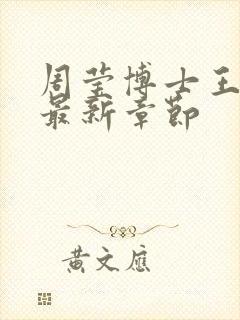 周莹博士王
最新章节
黄文应